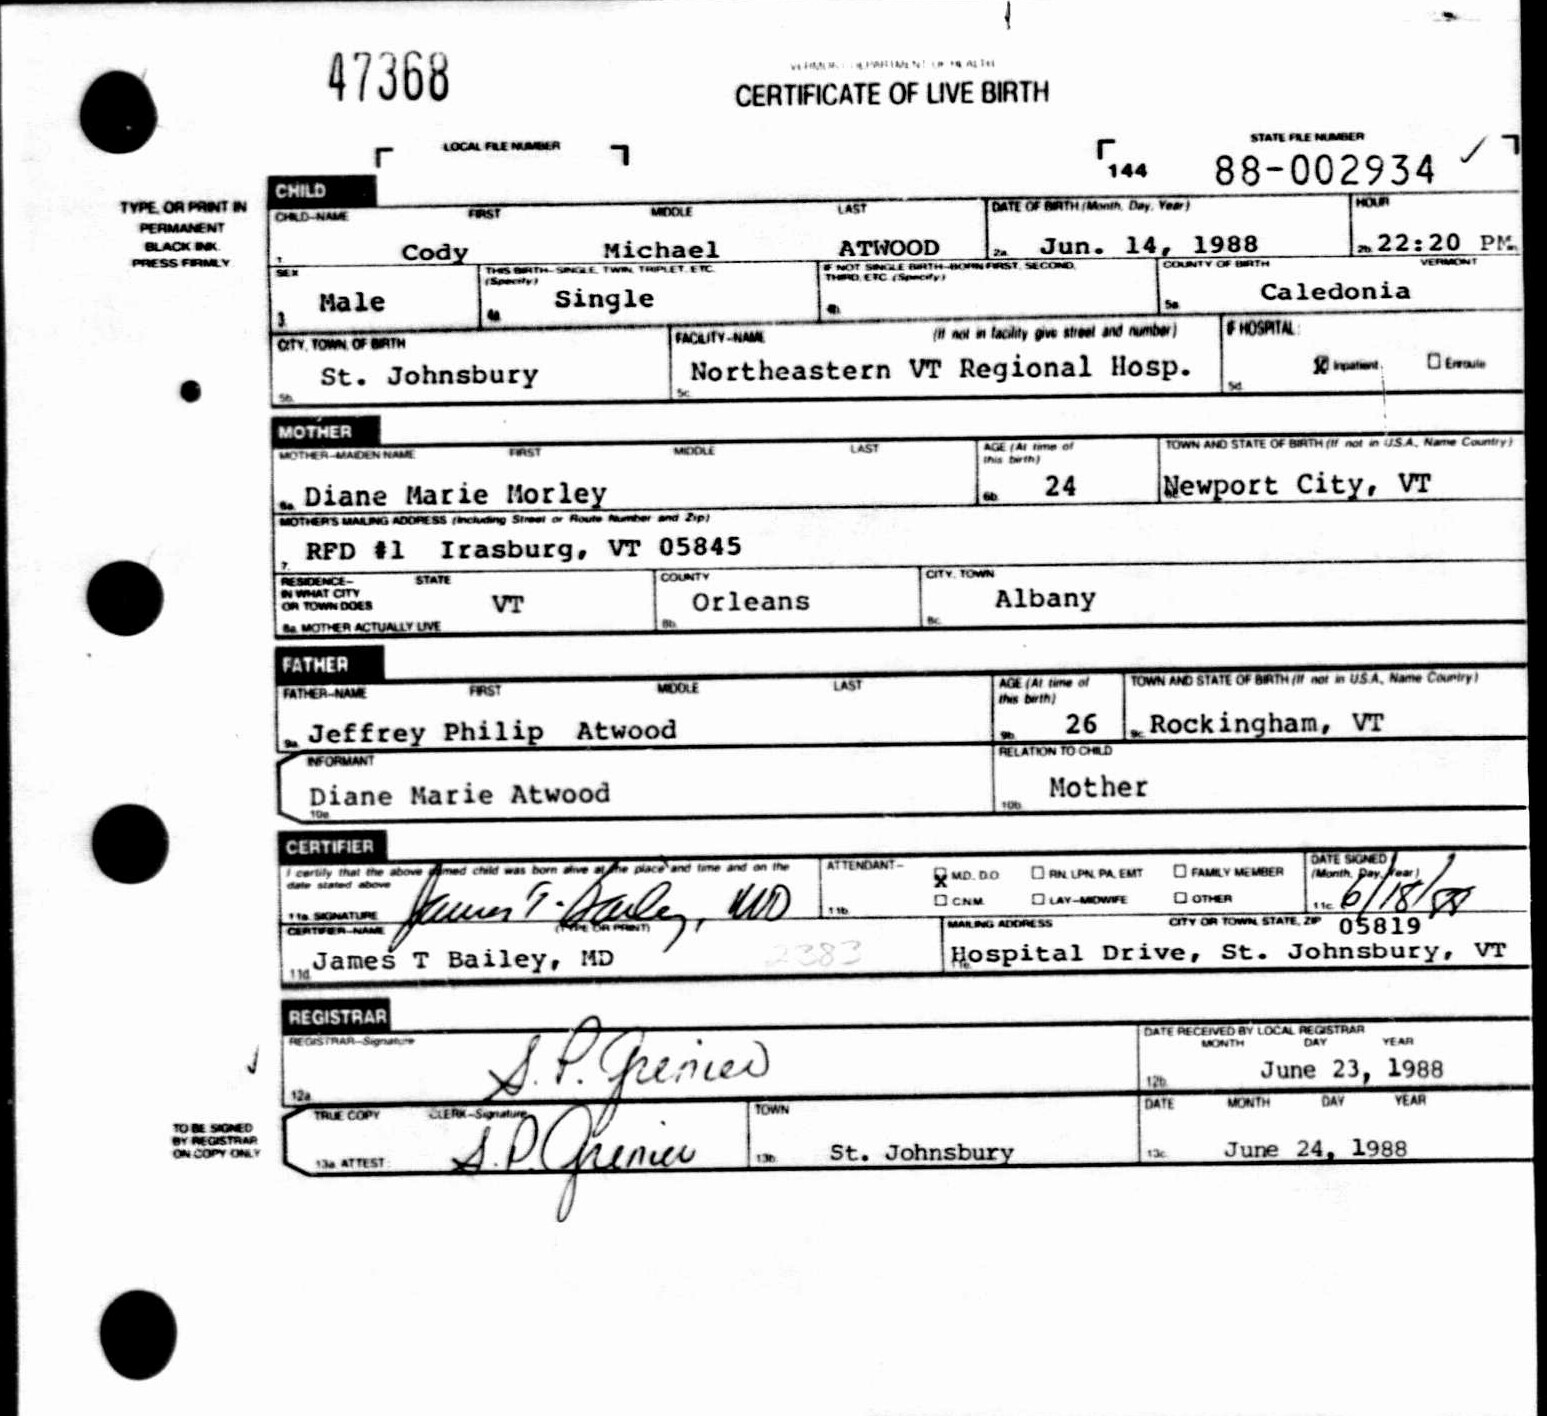 47368
VERMONT DEPARTMENT OF HEALTH
CERTIFICATE OF LIVE BIRTH
LOCAL FILE NUMBER
STATE FILE NUMBER
144 88-002934
TYPE, OR PRINT IN
PERMANENT
BLACK INK.
PRESS FIRMLY
CHILD
CHILD-NAME FIRST MIDDLE LAST DATE OF BIRTH (Month, Day, Year) HOUR
1. Cody Michael ATWOOD 2a. Jun. 14, 1988 2b. 22:20 PM.
SEX THIS BIRTH-SINGLE, TWIN, TRIPLET, ETC. (Specify) IF NOT SINGLE BIRTH-BORN FIRST, SECOND, THIRD, ETC. (Specify) COUNTY OF BIRTH VERMONT
3. Male 4a. Single 4b. 5a. Caledonia
CITY, TOWN, OF BIRTH FACILITY-NAME (If not in facility give street and number) IF HOSPITAL:
5b. St. Johnsbury 5c. Northeastern VT Regional Hosp. 5d. Inpatient Enroute
MOTHER
MOTHER-MAIDEN NAME FIRST MIDDLE LAST AGE (At time of this birth) TOWN AND STATE OF BIRTH (If not in U.S.A., Name Country)
6a. Diane Marie Morley 6b. 24 Newport City, VT
MOTHER'S MAILING ADDRESS (Including Street or Route Number and Zip)
7. RFD #1 Irasburg, VT 05845
RESIDENCE- IN WHAT CITY OR TOWN DOES STATE COUNTY CITY, TOWN
8a. MOTHER ACTUALLY LIVE VT 8b. Orleans 8c. Albany
FATHER
FATHER-NAME FIRST MIDDLE LAST AGE (At time of this birth) TOWN AND STATE OF BIRTH (If not in U.S.A., Name Country)
9a. Jeffrey Philip Atwood 9b. 26 9c. Rockingham, VT
INFORMANT RELATION TO CHILD
10a. Diane Marie Atwood 10b. Mother
CERTIFIER
I certify that the above named child was born alive at the place and time and on the date stated above
11a. SIGNATURE James T. Bailey, MD
ATTENDANT- M.D. D.O RN, LPN, PA, EMT FAMILY MEMBER
11b. C.N.M. LAY-MIDWIFE OTHER
DATE SIGNED (Month, Day, Year)
11c. 6/18/88
CERTIFIER-NAME (TYPE OR PRINT) MAILING ADDRESS CITY OR TOWN, STATE, ZIP 05819
11d. James T Bailey, MD 2383 11e. Hospital Drive, St. Johnsbury, VT
REGISTRAR
REGISTRAR-Signature DATE RECEIVED BY LOCAL REGISTRAR
MONTH DAY YEAR
12a. S. P. Grenier 12b. June 23, 1988
TO BE SIGNED
BY REGISTRAR
ON COPY ONLY
TRUE COPY CLERK-Signature TOWN DATE MONTH DAY YEAR
13a. ATTEST: S. P. Grenier 13b. St. Johnsbury 13c. June 24, 1988